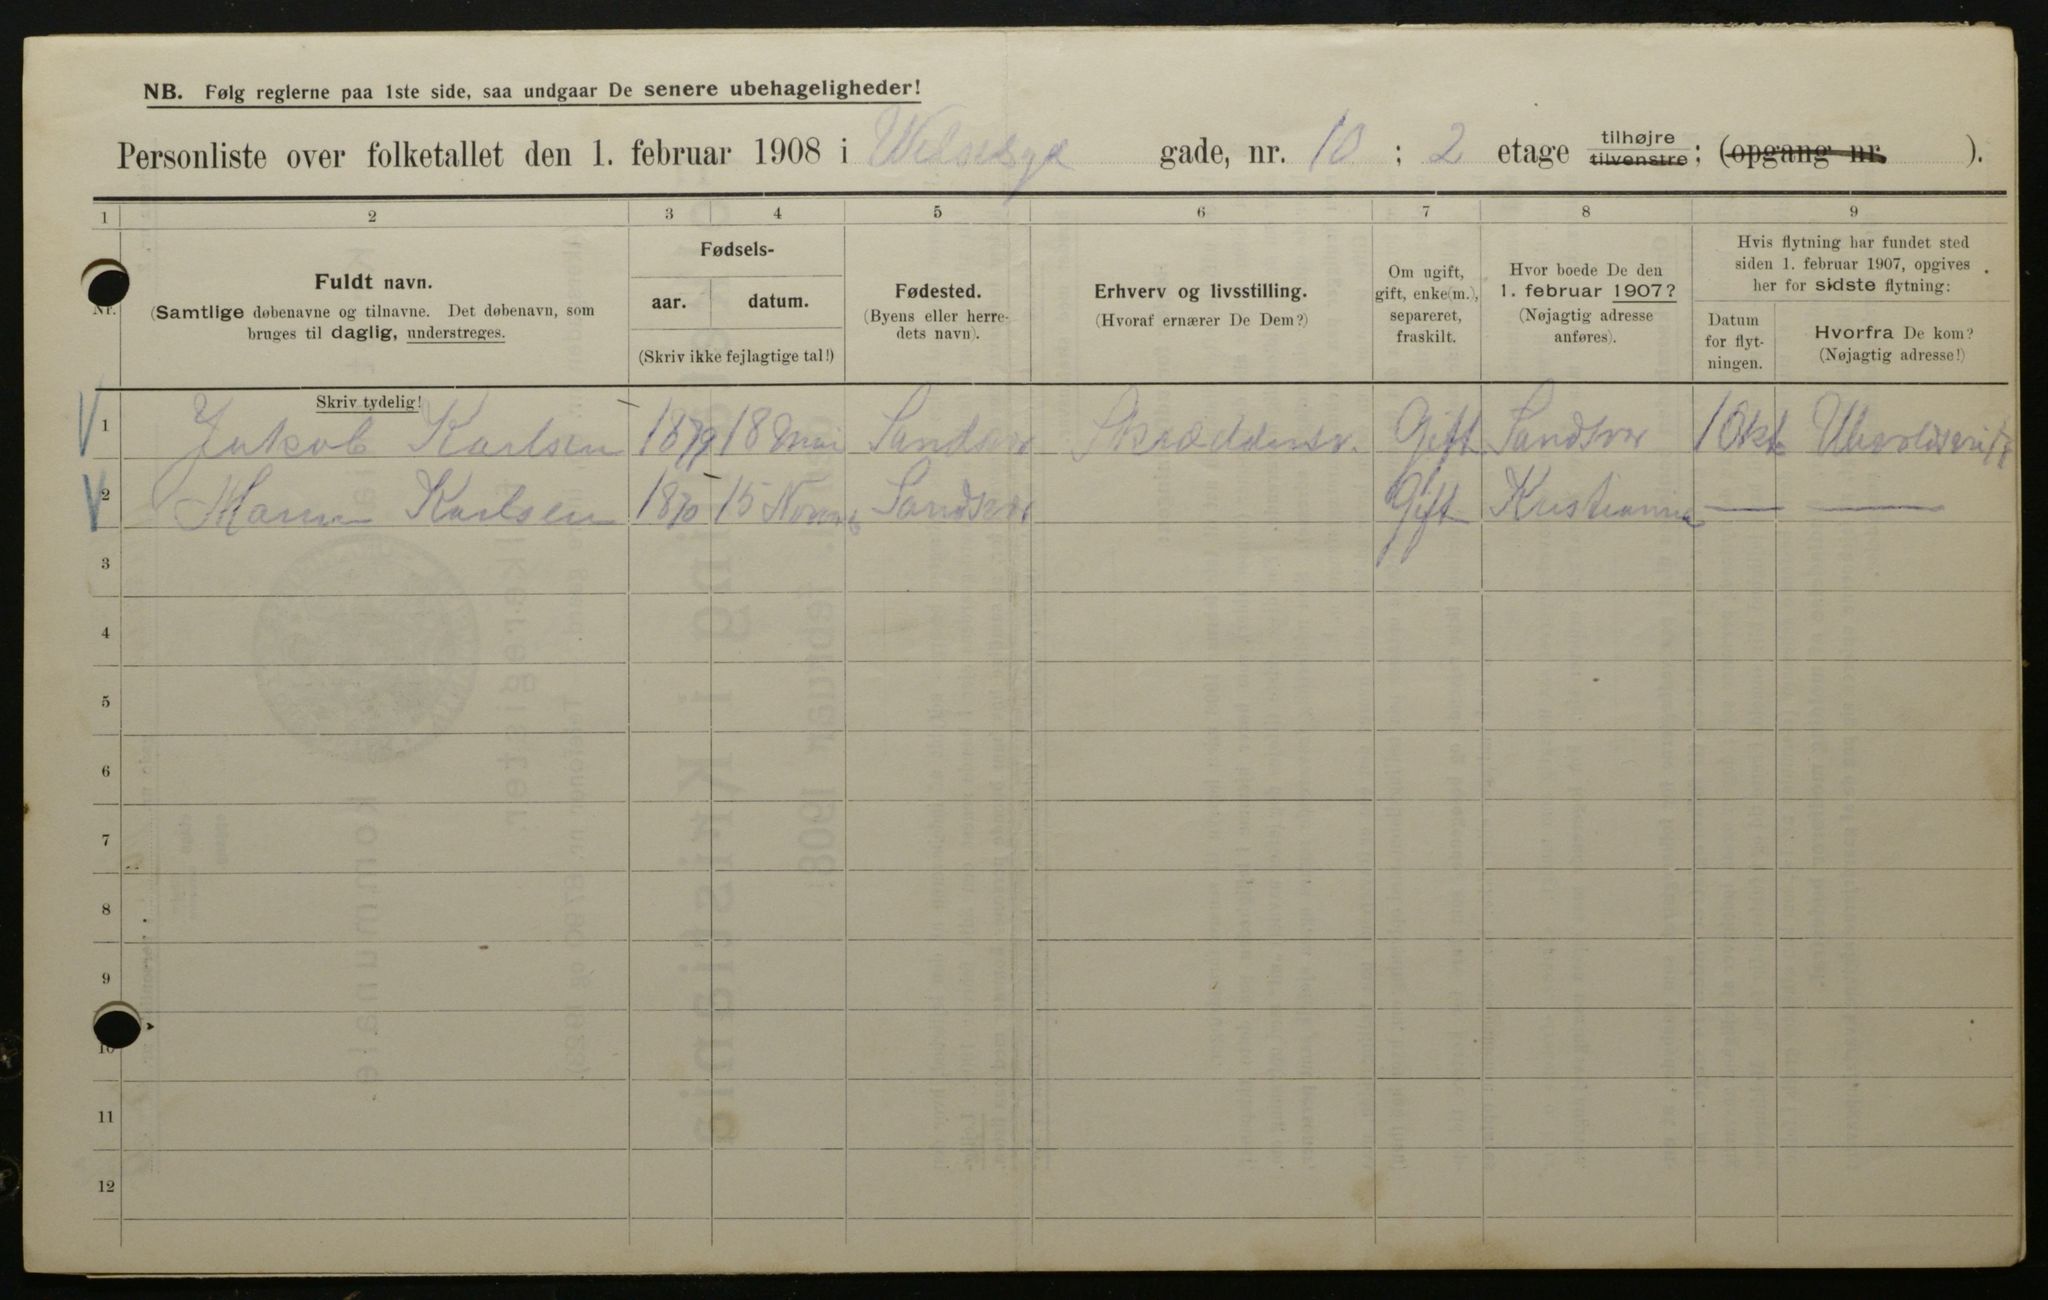 NB. Følg reglerne paa 1ste side, saa undgaar De senere ubehageligheder!
Personliste over folketallet den 1. februar 1908 i gade, nr. 10 ; 2 etage tilhøjre tilvenstre ; (opgang nr. ).
1 2 3 4 5 6 7 8 9
Nr.
Fuldt navn.
(Samtlige døbenavne og tilnavne. Det døbenavn, som
bruges til daglig, understreges.
Fødsels-
aar. datum.
(Skriv ikke fejlagtige tal!)
Fødested.
(Byens eller herre-
dets navn).
Erhverv og livsstilling.
(Hvoraf ernærer De Dem?)
Om ugift,
gift, enke(m.),
separeret,
fraskilt.
Hvor boede De den
1. februar 1907?
(Nøjagtig adresse
anføres).
Hvis flytning har fundet sted
siden 1. februar 1907, opgives
her for sidste flytning:
Datum
for flyt-
ningen.
Hvorfra De kom?
(Nøjagtig adresse!)
Skriv tydelig!
1 Jakob Karlsen 1879 18 Mai Sandsvr Skræddersv. Gift Sandsvr 1 Okt
2 Karlsen 1870 15 Sandsvr Gift Kristiania — —
3
4
5
6
7
8
9
10
11
12